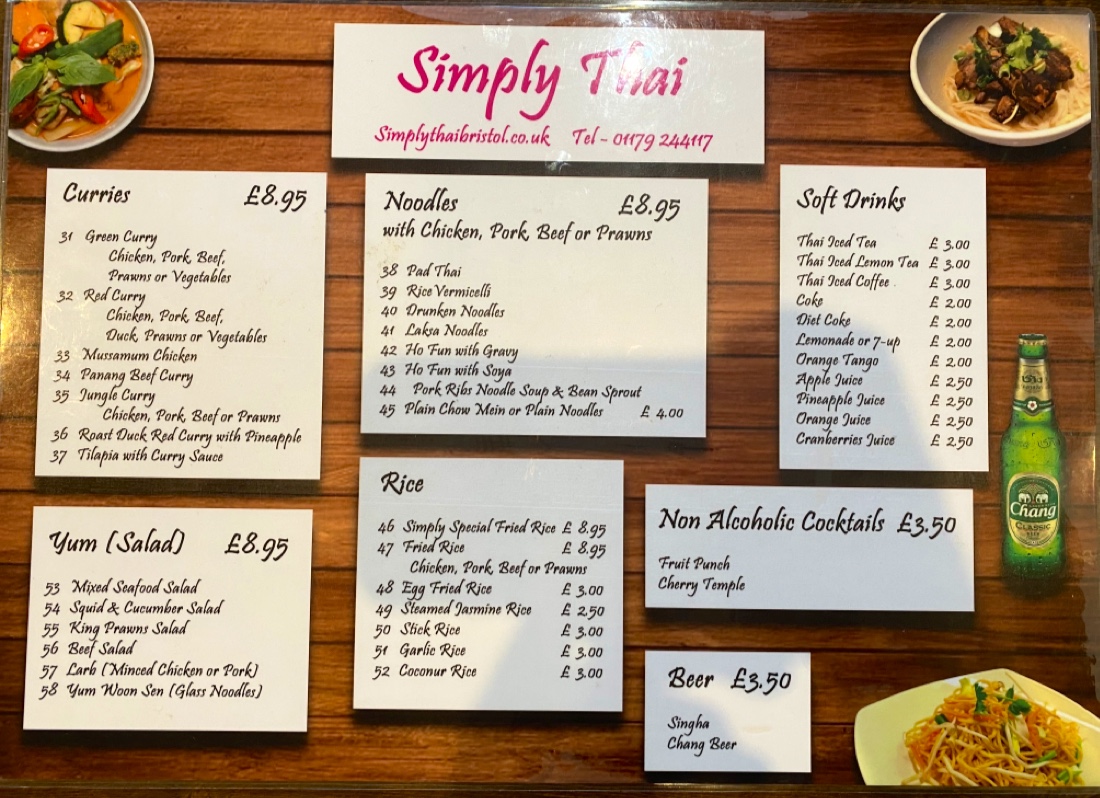 Simply Thai
Simplythaibristol.co.uk Tel - 01179 244117
Curries £8.95
31 Green Curry
Chicken, Pork, Beef,
Prawns or Vegetables
32 Red Curry
Chicken, Pork, Beef,
Duck, Prawns or Vegetables
33 Mussamum Chicken
34 Panang Beef Curry
35 Jungle Curry
Chicken, Pork, Beef or Prawns
36 Roast Duck Red Curry with Pineapple
37 Tilapia with Curry Sauce
Noodles £8.95
with Chicken, Pork, Beef or Prawns
38 Pad Thai
39 Rice Vermicelli
40 Drunken Noodles
41 Laksa Noodles
42 Ho Fun with Gravy
43 Ho Fun with Soya
44 Pork Ribs Noodle Soup & Bean Sprout
45 Plain Chow Mein or Plain Noodles £ 4.00
Soft Drinks
Thai Iced Tea £ 3.00
Thai Iced Lemon Tea £ 3.00
Thai Iced Coffee £ 3.00
Coke £ 2.00
Diet Coke £ 2.00
Lemonade or 7-up £ 2.00
Orange Tango £ 2.00
Apple Juice £ 2.50
Pineapple Juice £ 2.50
Orange Juice £ 2.50
Cranberries Juice £ 2.50
Yum (Salad) £8.95
53 Mixed Seafood Salad
54 Squid & Cucumber Salad
55 King Prawns Salad
56 Beef Salad
57 Larb (Minced Chicken or Pork)
58 Yum Woon Sen (Glass Noodles)
Rice
46 Simply Special Fried Rice £ 8.95
47 Fried Rice £ 8.95
Chicken, Pork, Beef or Prawns
48 Egg Fried Rice £ 3.00
49 Steamed Jasmine Rice £ 2.50
50 Stick Rice £ 3.00
51 Garlic Rice £ 3.00
52 Coconur Rice £ 3.00
Non Alcoholic Cocktails £3.50
Fruit Punch
Cherry Temple
Beer £3.50
Singha
Chang Beer
Chang
CLASSIC